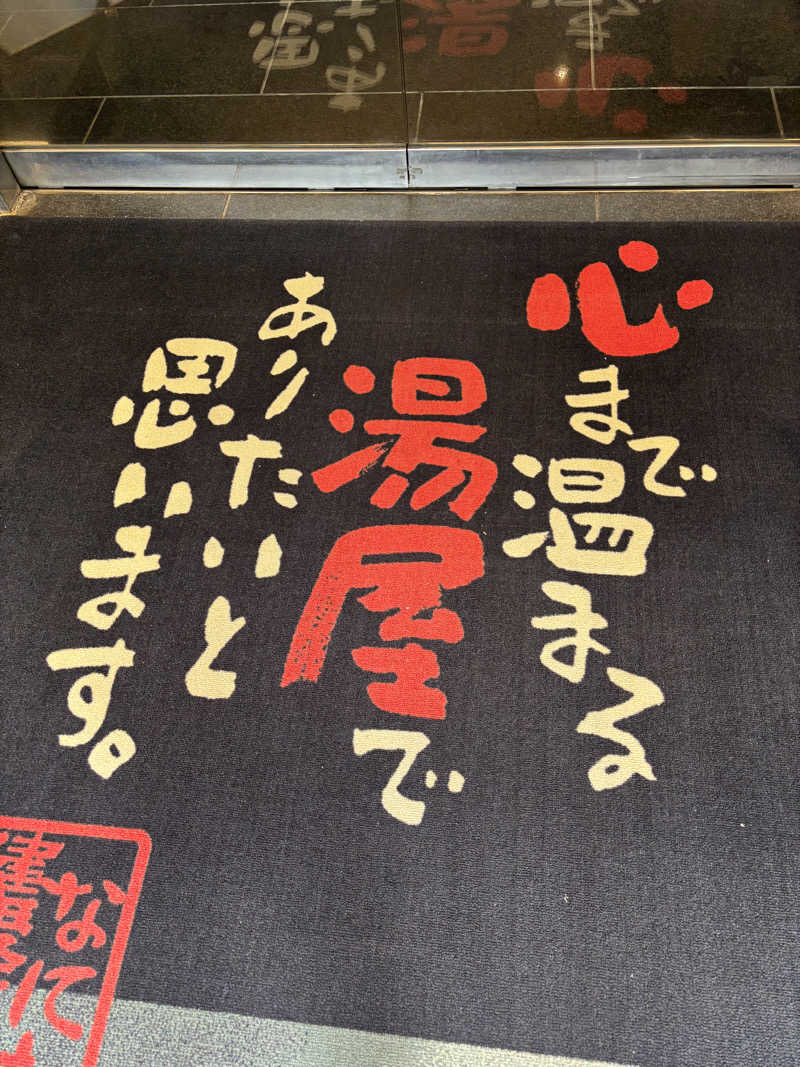 心まで温まる
湯屋で
ありたいと
思います。
なに